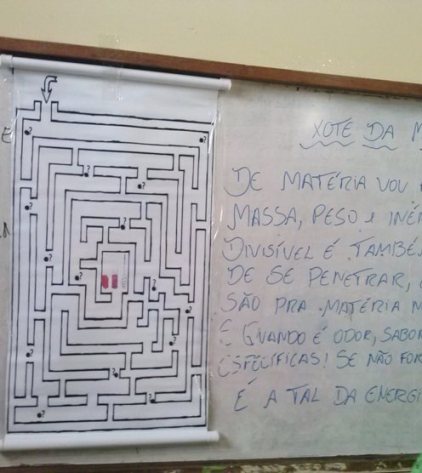 XOTE DA M
DE MATÉRIA VOU
MASSA, PESO E INÉR
DIVISÍVEL É TAMBÉ
DE SE PENETRAR,
SÃO PRA MATÉRIA
E QUANDO É ODOR, SABOR
ESPECÍFICAS! SE NÃO FOR
É A TAL DA ENERGI